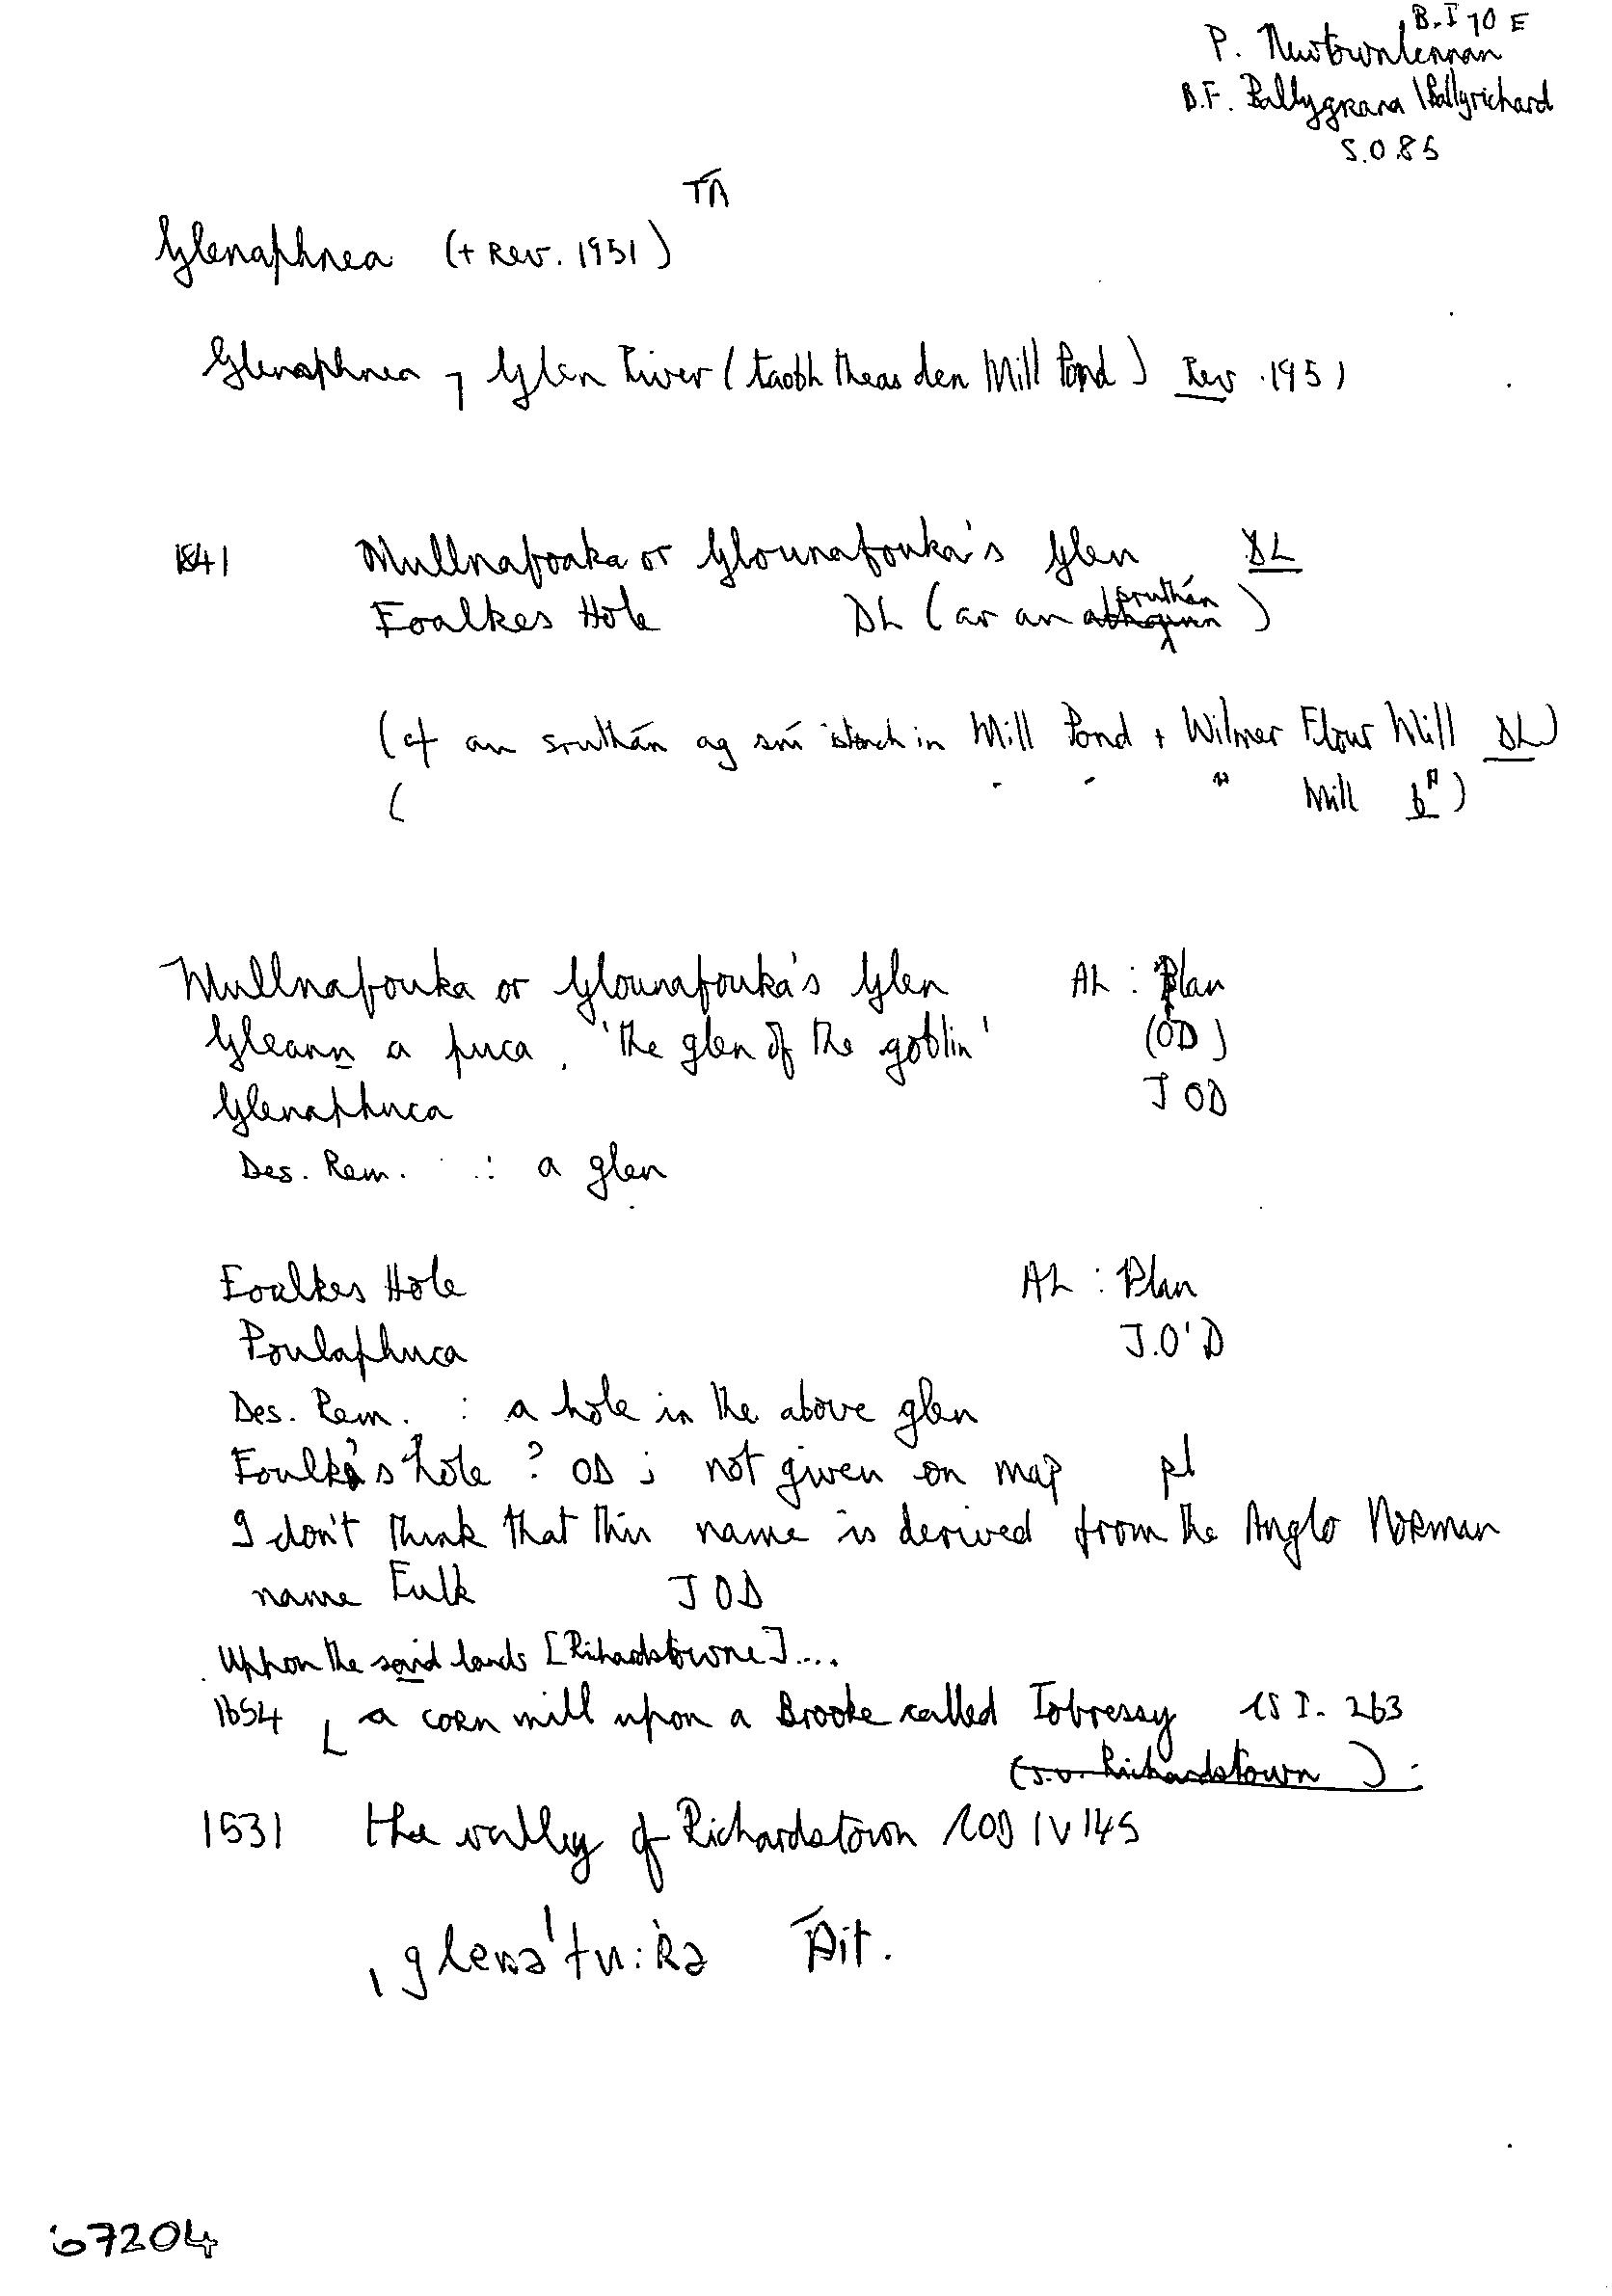 B.I 70 E
P. Newtownlennan
B.F. Ballygrana / Ballyrichard
S.O.85
TÁ
Glenaphnca (+ Rev. 1951)
Glenaphnca ⁊ Glen River (taobh theas den Mill Pond) Rev. 1951
1841 Mullnafoaka or Glounafouka's Glen DL
Foalkes Hole DL (ar an sruthán)
(cf an sruthán ag sní isteach in Mill Pond + Wilmer Flour Mill DL)
( " " " Mill 6")
Mullnafouka or Glounafouka's Glen AL : Plan
Gleann a puca, 'the glen of the goblin' (OD)
Glenaphuca JOD
Des. Rem. : a glen
Foulkes Hole AL : Plan
Poulaphuca J.O'D
Des. Rem. : a hole in the above glen
Foulke's hole ? OD ; not given on map pl
I don't think that this name is derived from the Anglo Norman
name Fulk JOD
Uppon the said lands [Richardstowne]....
1654 a corn mill upon a Brooke called Tobressy CS I. 263
(s.v. Richardstown)
1531 the valley of Richardstown COD IV 145
ˌglenəˈfuːkə Áit.
67204